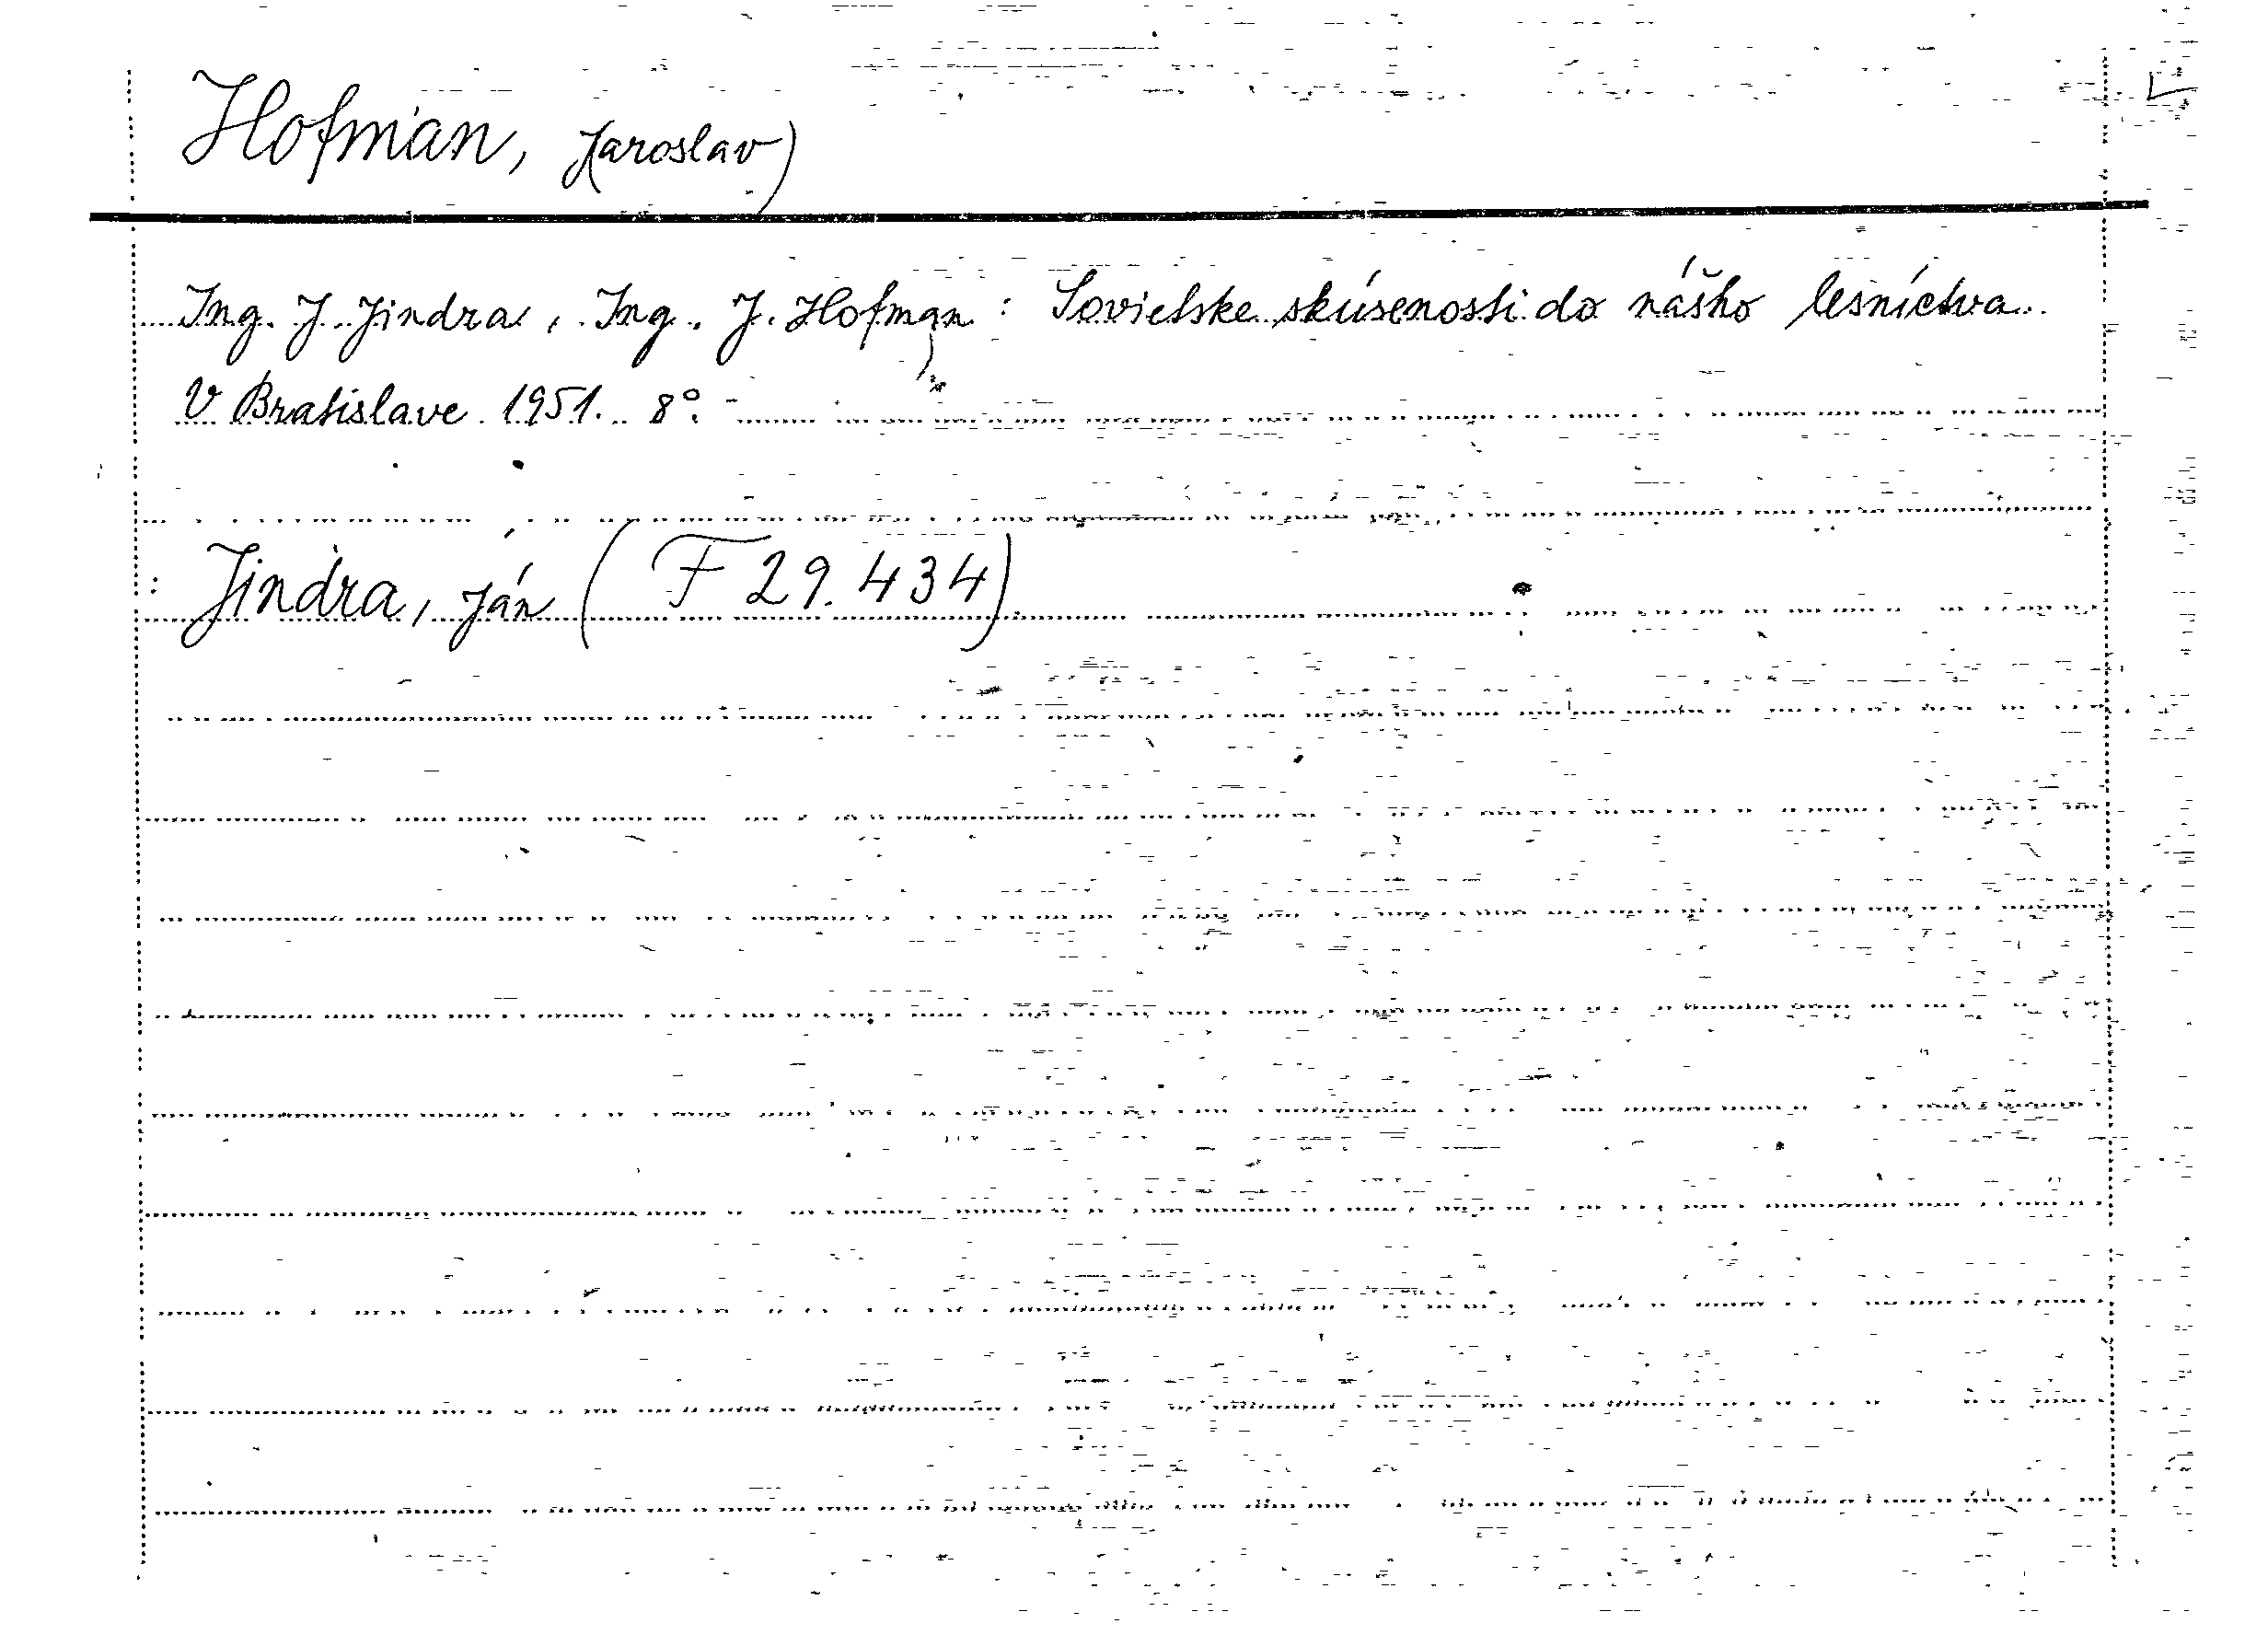 Hofman, J(aroslav)
Ing. J. Jindra, Ing. J. Hofman: Sovietske skúsenosti do nášho lesníctva.
V Bratislave 1951. 8°.
: Jindra, Ján (F 29.434)